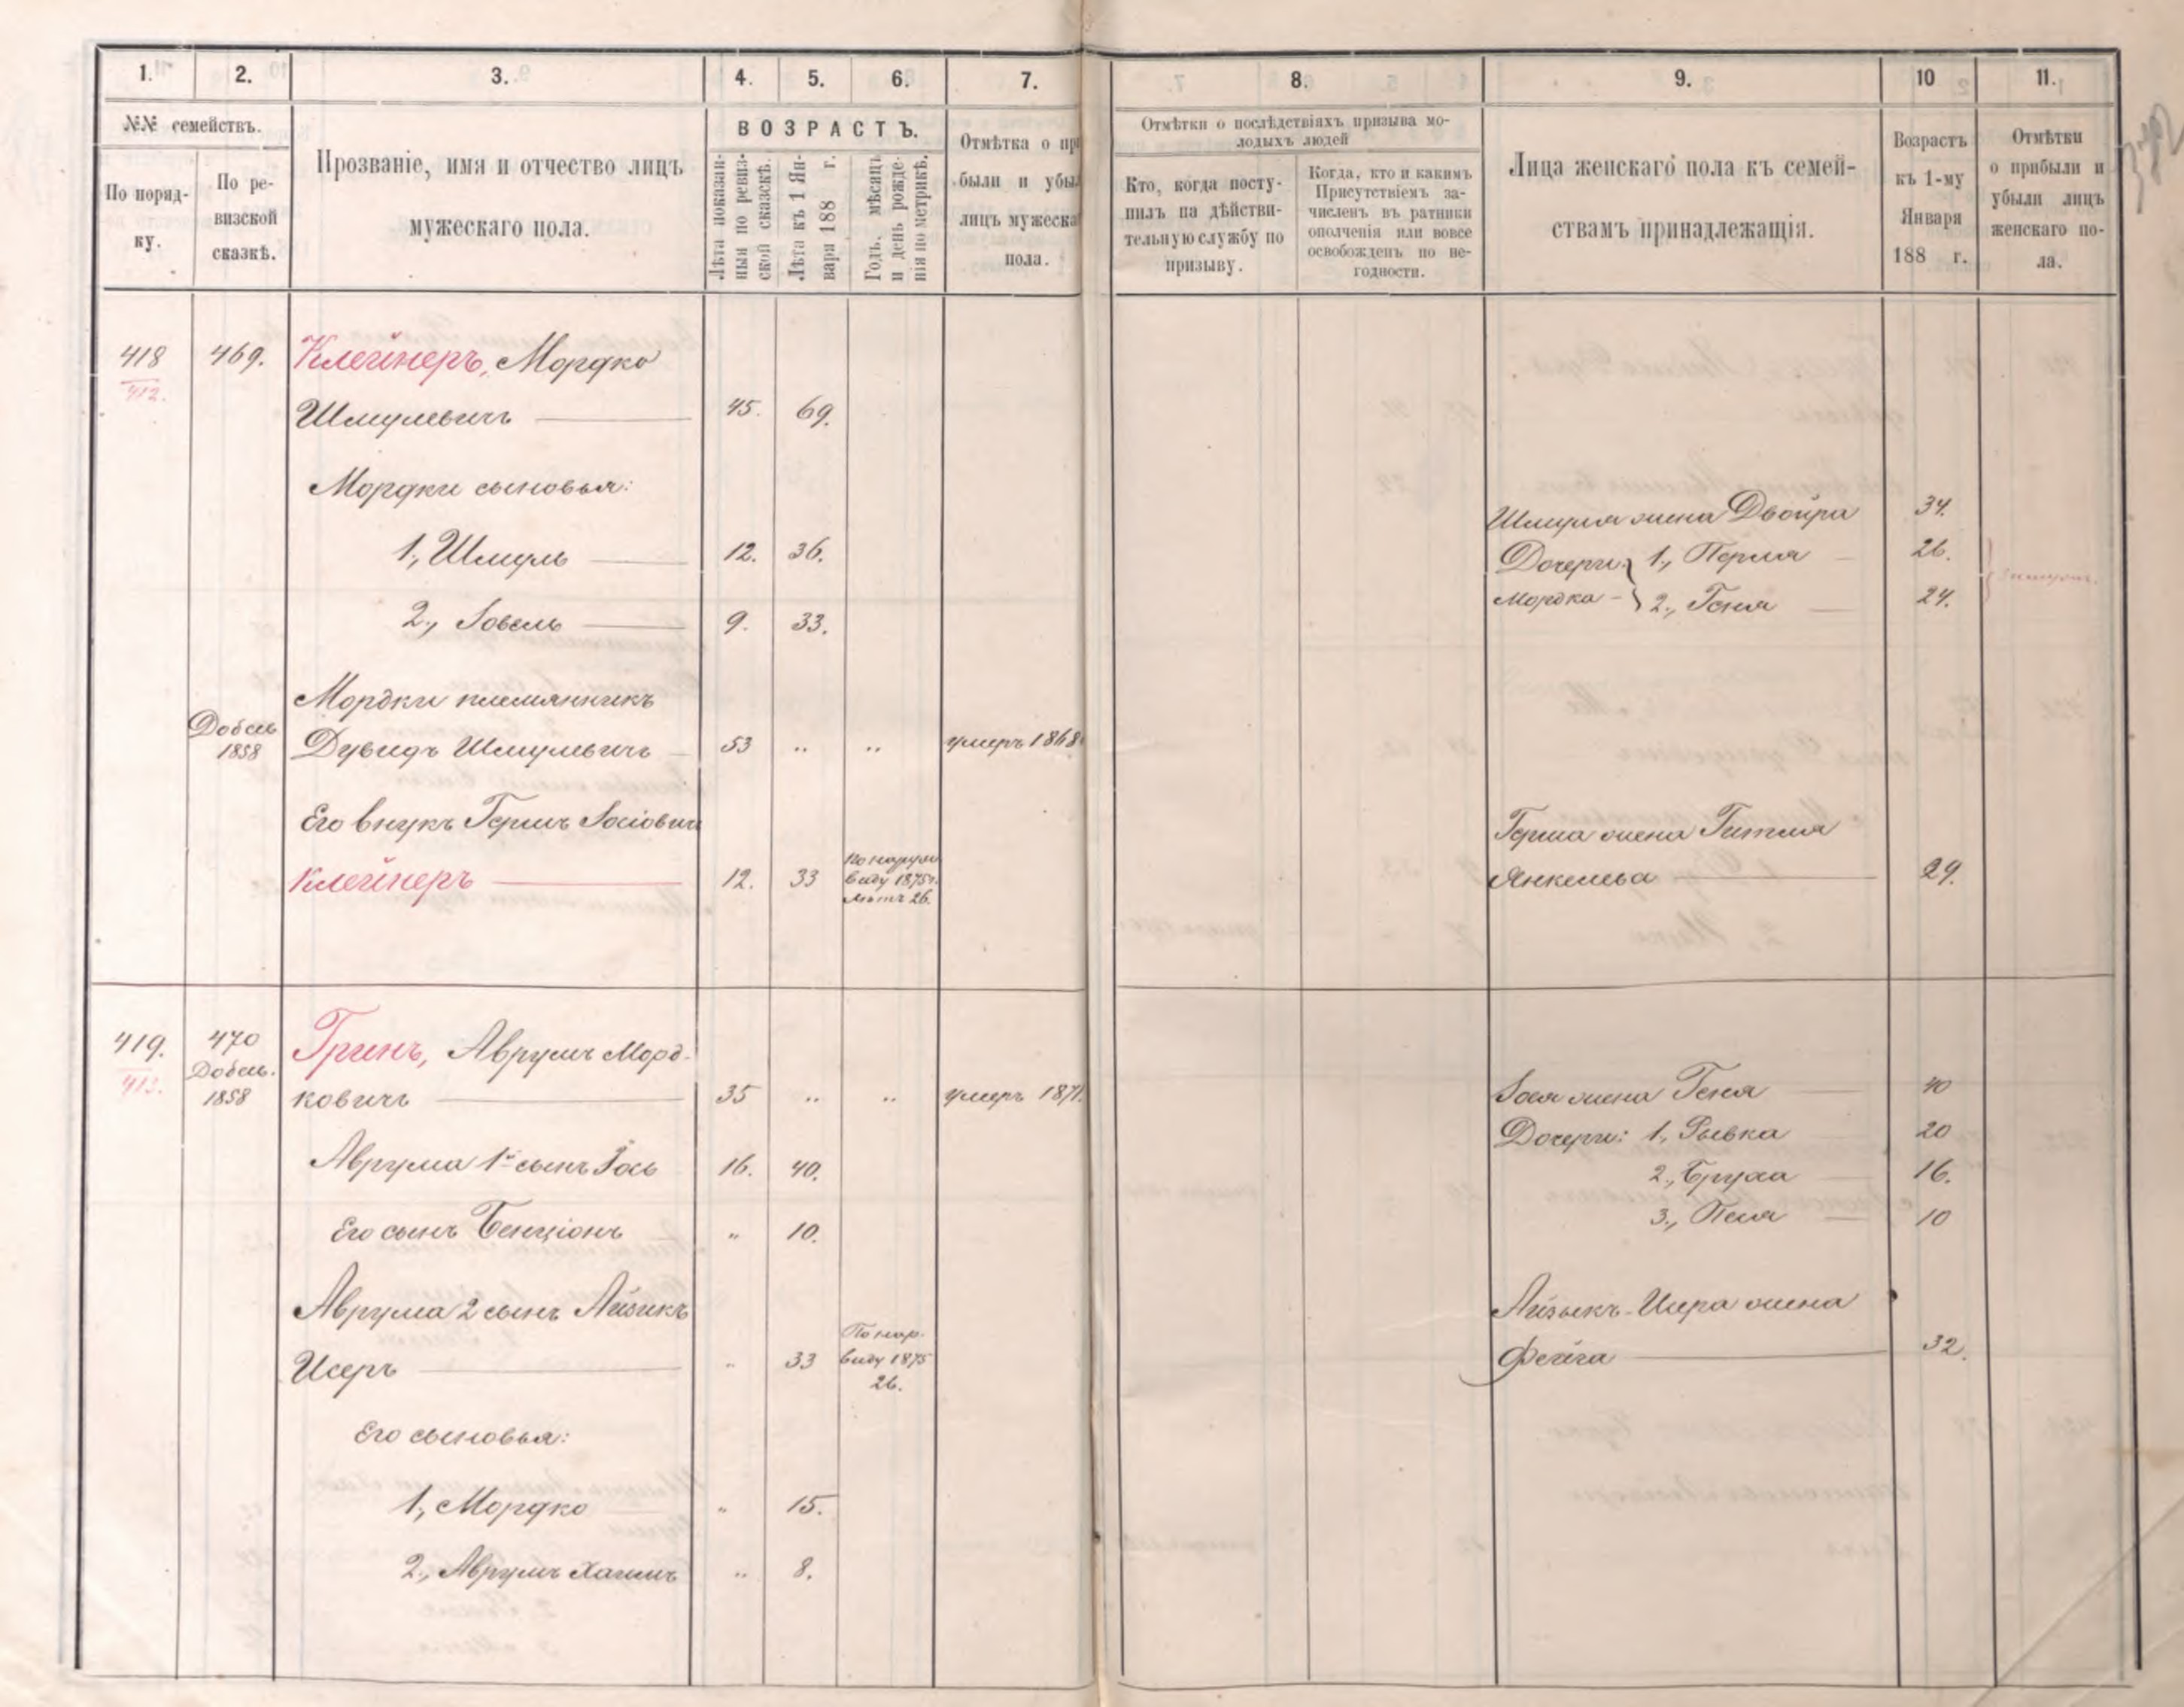 1. 2. 3. 4. 5. 6. 7. 8. 9. 10 11.
№№ семействъ.
По поряд-
ку.
По ре-
визской
сказкѣ.
Прозваніе, имя и отчество лицъ
мужескаго пола.
ВОЗРАСТЪ.
Лѣта показан-
ныя по ревиз-
ской сказкѣ.
Лѣта къ 1 Ян-
варя 188 г.
Годъ, мѣсяцъ
и день рожде-
нія по метрикѣ.
Отмѣтка о пр
были и убы
лицъ мужеска
пола.
Отмѣтки о послѣдствіяхъ призыва мо-
лодыхъ людей
Кто, когда посту-
пилъ на дѣйстви-
тельную службу по
призыву.
Когда, кто и какимъ
Присутствіемъ за-
численъ въ ратники
ополченія или вовсе
освобожденъ по не-
годности.
Лица женскаго пола къ семей-
ствамъ принадлежащія.
Возрастъ
къ 1-му
Января
188 г.
Отмѣтки
о прибыли и
убыли лицъ
женскаго по-
ла.
418 469. Клейнеръ, Мордко
412.
Шмулевичъ 45. 69.
Мордки сыновья:
1, Шмуль 12. 36.
2, Іовель 9. 33.
Мордки племянникъ
Добав
1858 Дувидъ Шмулевичъ 53 .. .. умеръ 1868
Его внукъ Гершъ Іосіовичъ
Клейнеръ 12. 33
виду 1875г.
лѣтъ 26.
Шмуля жена Двойра 34.
Дочери 1, Перля 26.
Мордка 2, Геня 24.
Герша жена Гитля
Янкелева 29.
419. 470 Гринъ, Аврумъ Морд-
413. Добав.
1858 ковичъ 35 .. .. умеръ 1871.
Аврума 1й сынъ Іось 16. 40.
Его сынъ Бенціонъ " 10.
Аврума 2 сынъ Айзикъ
Исеръ " 33
По нар.
виду 1875
26.
Его сыновья:
1, Мордко " 15.
2, Аврумъ Хаимъ " 8.
Іося жена Геня 40
Дочери: 1, Рывка 20
2, Бруха 16.
3, Песя 10
Айзыкъ-Исера жена
Фейга 32.